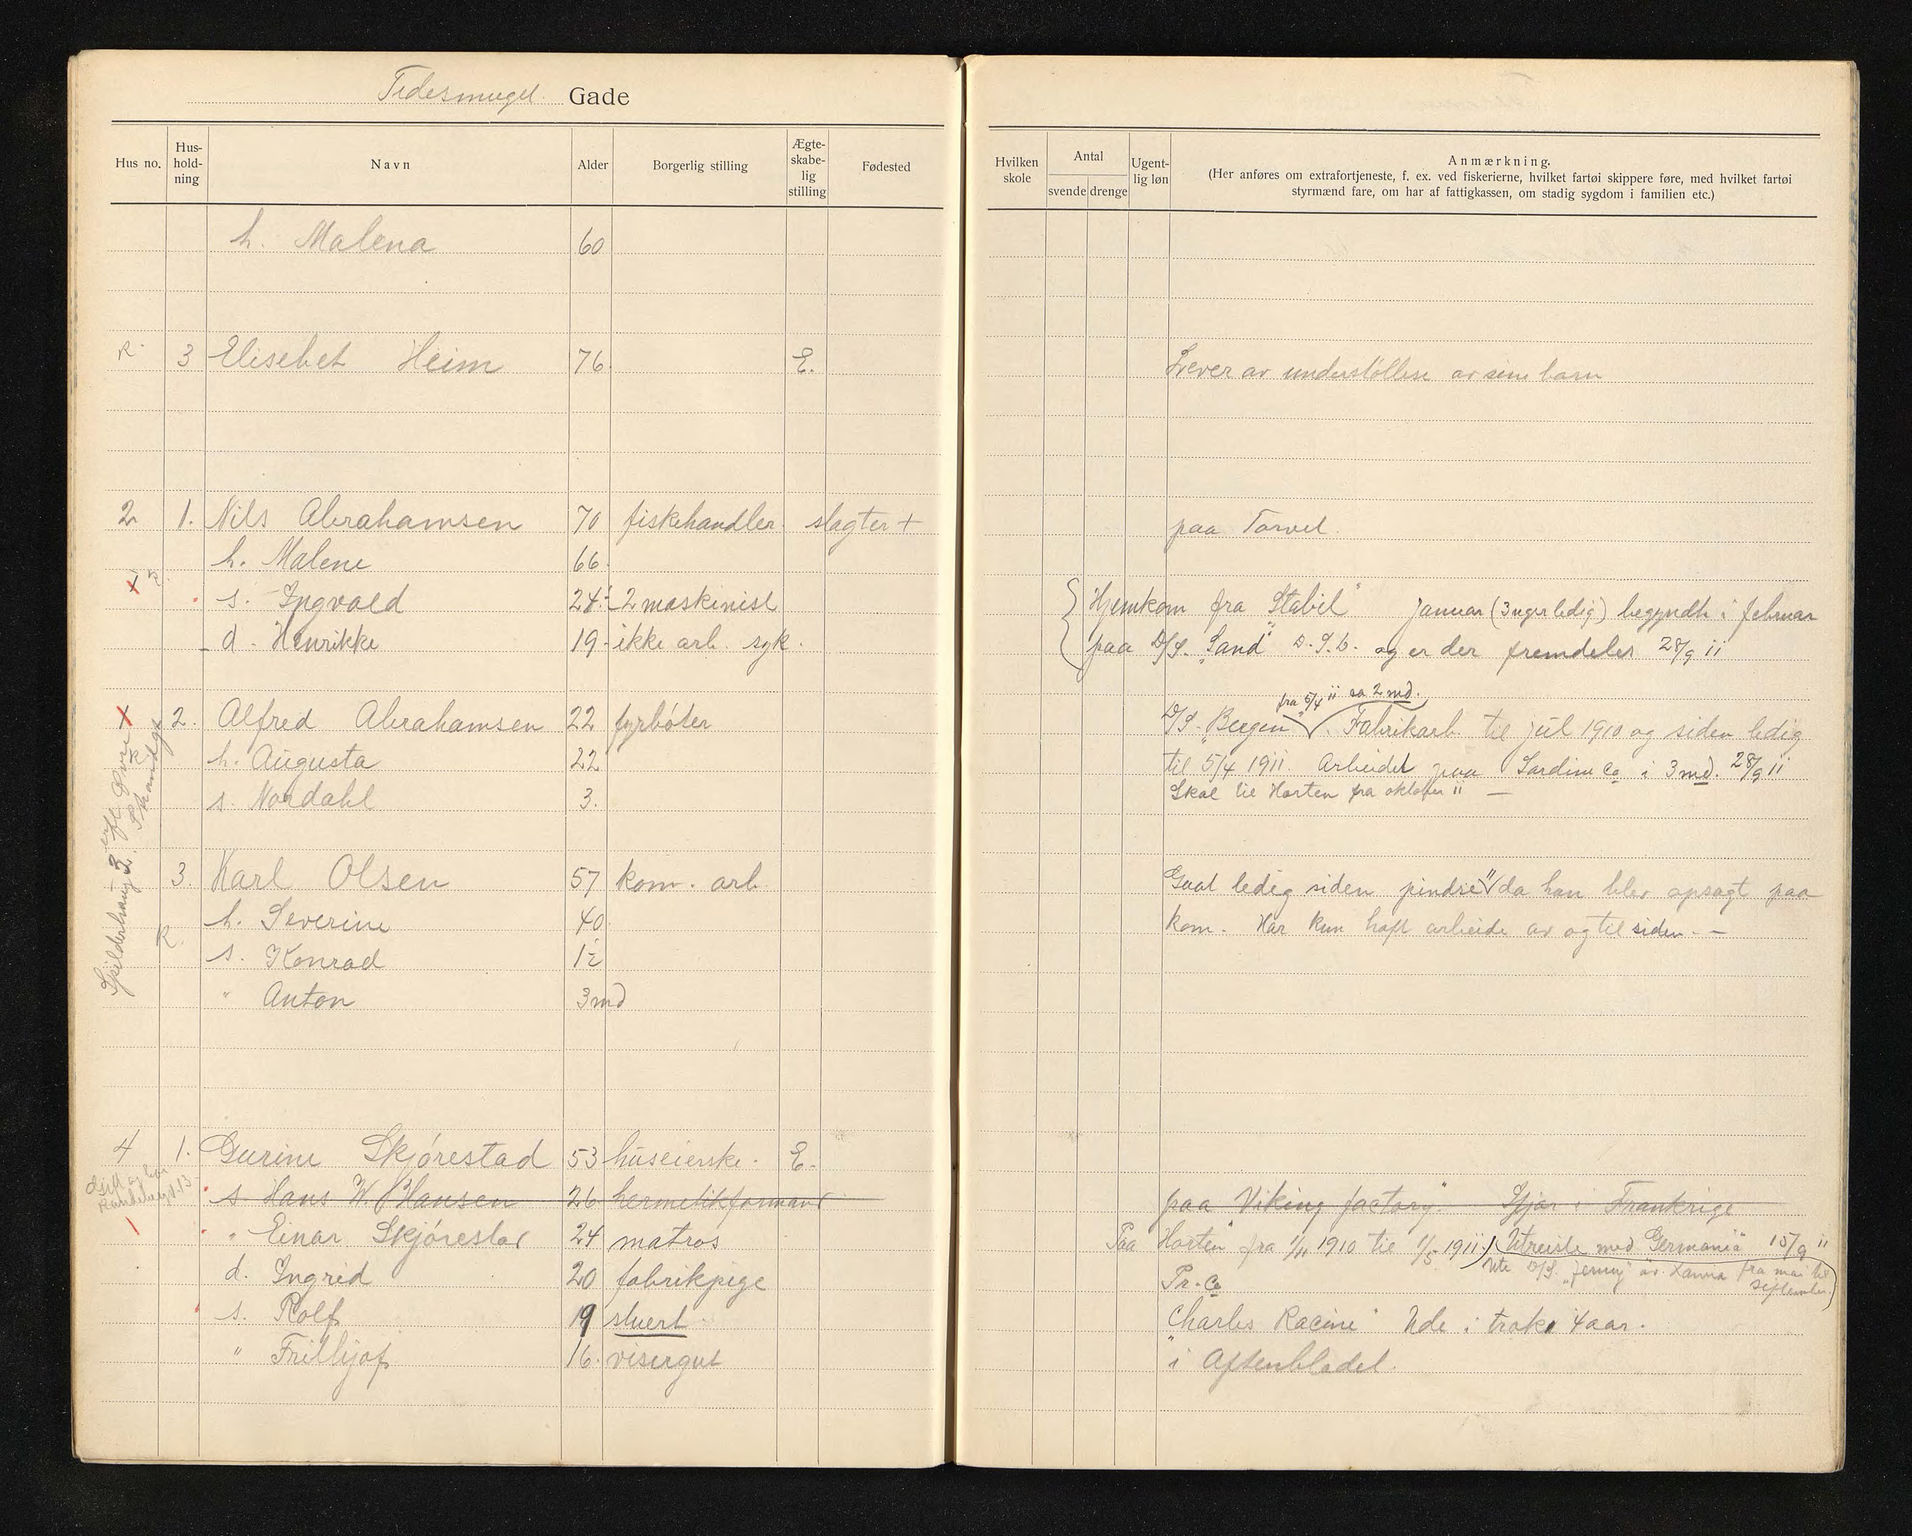 Tidesmuget Gade
Hus no. Hus-hold-ning Navn Alder Borgerlig stilling Ægte-skabe-lig stilling Fødested
Hvilken skole Antal svende drenge Ugent-lig løn Anmærkning.
(Her anføres om extrafortjeneste, f. ex. ved fiskerierne, hvilket fartøi skippere føre, med hvilket fartøi
styrmænd fare, om har af fattigkassen, om stadig sygdom i familien etc.)
h. Malena 60
R. 3 Elisebet Heim 76. E. Lever av understøttelse av sine barn
2 1. Nils Abrahamsen 70 fiskehandler slagter + paa Torvet.
h. Malene 66.
+ R. s. Ingvald 24. 2 maskinist Hjemkom fra "Stabil" januar (3 uger ledig) begyndte i februar
d. Henrikke 19. ikke arb. syk. paa D/S. "Sand" D.S.D. og er der fremdeles 28/9 11
fra 5/4 11 ca 2 md.
+ 2. Alfred Abrahamsen 22 fyrbøter D/S. "Bergen". Fabrikarb. til jul 1910 og siden ledig
R h. Augusta 22 til 5/4 1911. Arbeidet paa Sardine Co i 3 md. 28/9 11
s. Nordahl 3. Skal til Horten fra oktober 11 —
Spilderhaug 3. Øvre Strandgt
3. Karl Olsen 57 kom. arb. Gaat ledig siden pindse 11 da han blev opsagt paa
R. h. Severine 40. kom. Har kun haft arbeide av og til siden. —
s. Konrad 1½
" Anton 3 md
4 1. Gurine Skjørestad 53 huseierske. E.
Randebergt. 13
s. Hans W. Hansen 26 hermetikformand paa "Viking factory" Gjør i Frankrige
" Einar Skjørestad 24 matros Paa "Horten" fra 1/11 1910 til 1/5 1911) Utreiste med "Germania" 15/9 11
d. Ingrid 20 fabrikpige Pr. Co Ute D/S. "Jenny" av fra mai til september.)
s. Rolf 19 stuert "Charles Racine" Ude i trak 4 aar.
" Frithjof 16. visergut i Aftenbladet.